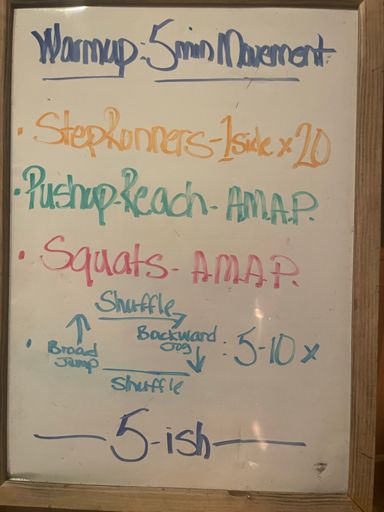 Warmup: 5 min Movement
• StepRunners - 1 side x 20
• Pushup-Reach - A.M.A.P.
• Squats - A.M.A.P.
Shuffle
Broad Jump
Backward Jog
• : 5-10 x
Shuffle
5-ish